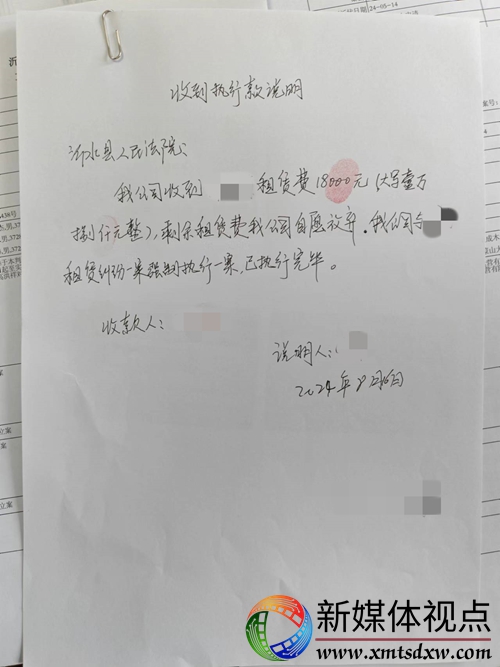 24-05-14
收到执行款说明
沂水县人民法院:
我公司收到 租赁费18000元(大写壹万
捌仟元整),剩余租赁费我公司自愿放弃.我公司与
租赁纠纷一案强制执行一案,已执行完毕。
收款人:
说明人:
2024年8月
新媒体视点
www.xmtsdxw.com